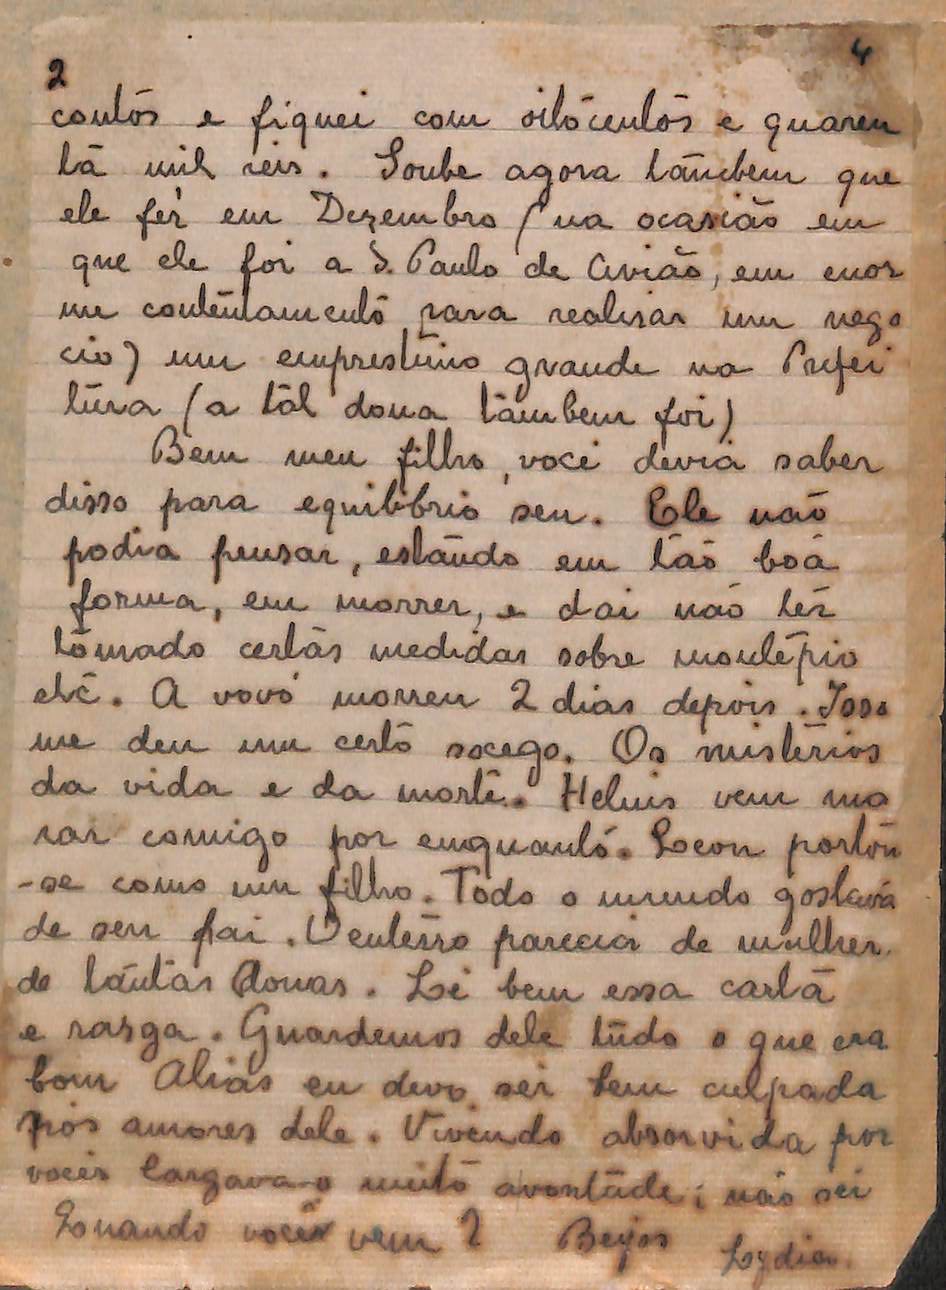 2 4
contos e fiquei com oitocentos e quaren
ta mil reis. Soube agora tambem que
ele fez em Dezembro (na ocasião em
que ele foi a S. Paulo de Avião, em enor
me contentamento para realisar um nego
cio) um emprestimo grande na Prefei
tura (a tal dona tambem foi)
Bem meu filho, você devia saber
disso para equilibrio seu. Ele não
podia pensar, estando em tão boa
forma, em morrer, e dai não ter
tomado certas medidas sobre montepio
etc. A vovó morreu 2 dias depois. Isso
me deu um certo socego. Os misterios
da vida e da morte. Heluis vem mo
rar comigo por emquanto. portou
-se como um filho. Todo o mundo gostava
de seu pai. O enterro parecia de mulher
de tantas donas. Lê bem essa carta
e rasga. Guardemos dele tudo o que era
bom Aliás eu devo ser bem culpada
nos amores dele. Vivendo absorvida por
voces largava-o muito avontade; não sei
Quando voces vem? Beijos
Lydia.